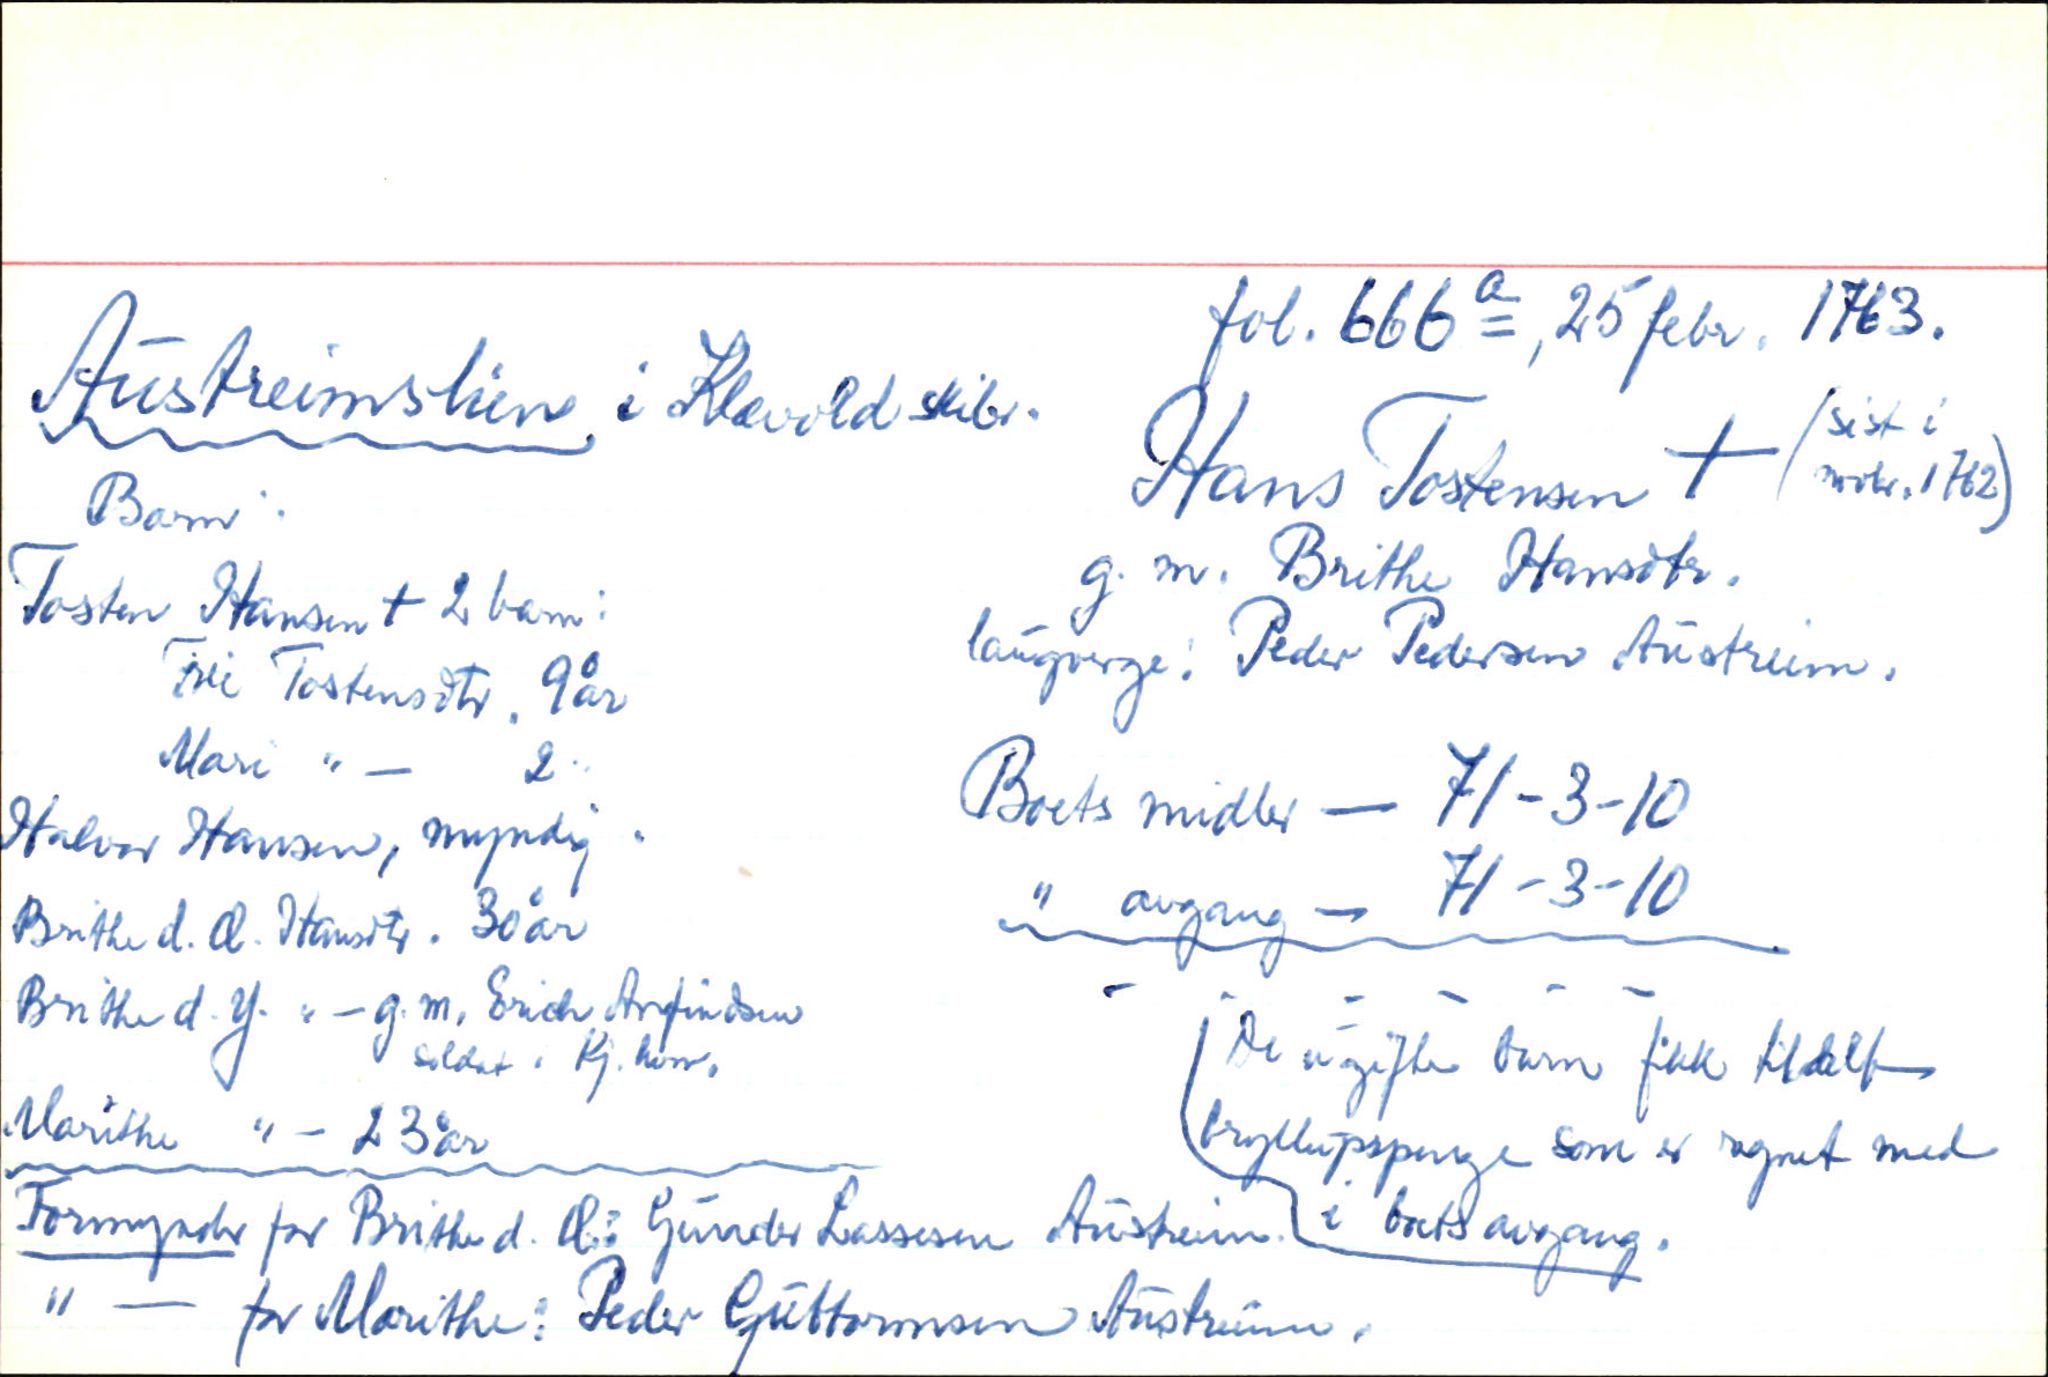 fol. 666 a, 25 febr. 1763.
Austreimslien i Klævold skibr.
Hans Tostensen † (sist i
novbr. 1762)
g. m. Brithe Hansdtr.
laugverge: Peder Pedersen Austreim.
Boets midler — 71-3-10
" avgang — 71-3-10
De ugifte barn fikk tildelt
bryllupspenge som er regnet med
i boets avgang.
Barn:
Tosten Hansen † 2 barn:
Tostensdtr. 9 år
Mari " — 2 "
Halvor Hansen, myndig.
Brithe d. Æ. Hansdtr. 30 år
Brithe d. Y. " — g. m. Erich Arfindsen
soldat i Kj.havn.
Marithe " — 23 år
Formynder for Brithe d. Æ: Gunder Lassesen Austreim.
" — for Marithe: Peder Guttormsen Austreim.